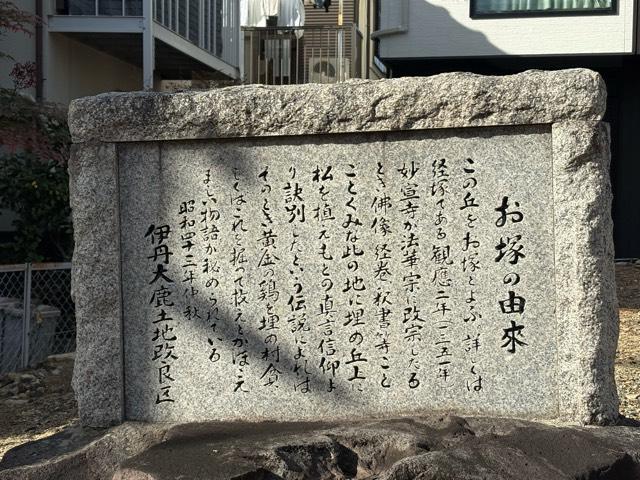 お塚の由來
この丘をお塚とよぶ 詳しくは
経塚である 観應二年一三五一年
妙宣寺が法華宗に改宗したる
とき佛像 経巻 秋書 等 こと
ごとくみな此の地に埋め丘上に
松を植えもとの真言信仰よ
り訣別したという伝説によれば
そのとき黄金の鶏を埋め村貧
しくばこれを掘って救えとかほゝえ
ましい物語が秘められている
昭和四十二年仲秋
伊丹大鹿土地改良区